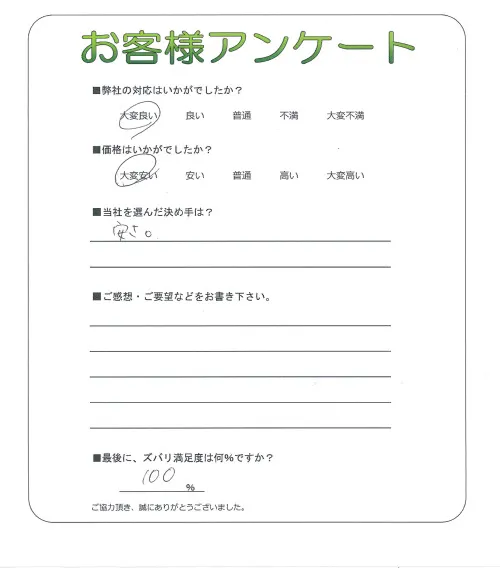 お客様アンケート
■弊社の対応はいかがでしたか？
大変良い 良い 普通 不満 大変不満
■価格はいかがでしたか？
大変安い 安い 普通 高い 大変高い
■当社を選んだ決め手は？
安さ。
■ご感想・ご要望などをお書き下さい。
■最後に、ズバリ満足度は何%ですか？
100
%
ご協力頂き、誠にありがとうございました。